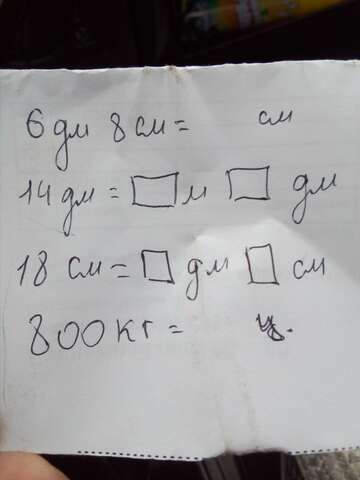 6 дм 8 см = см
14 дм = □ м □ дм
18 см = □ дм □ см
800 кг = ц.